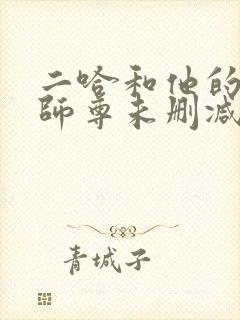 二哈和他的
師尊未删减
青城子